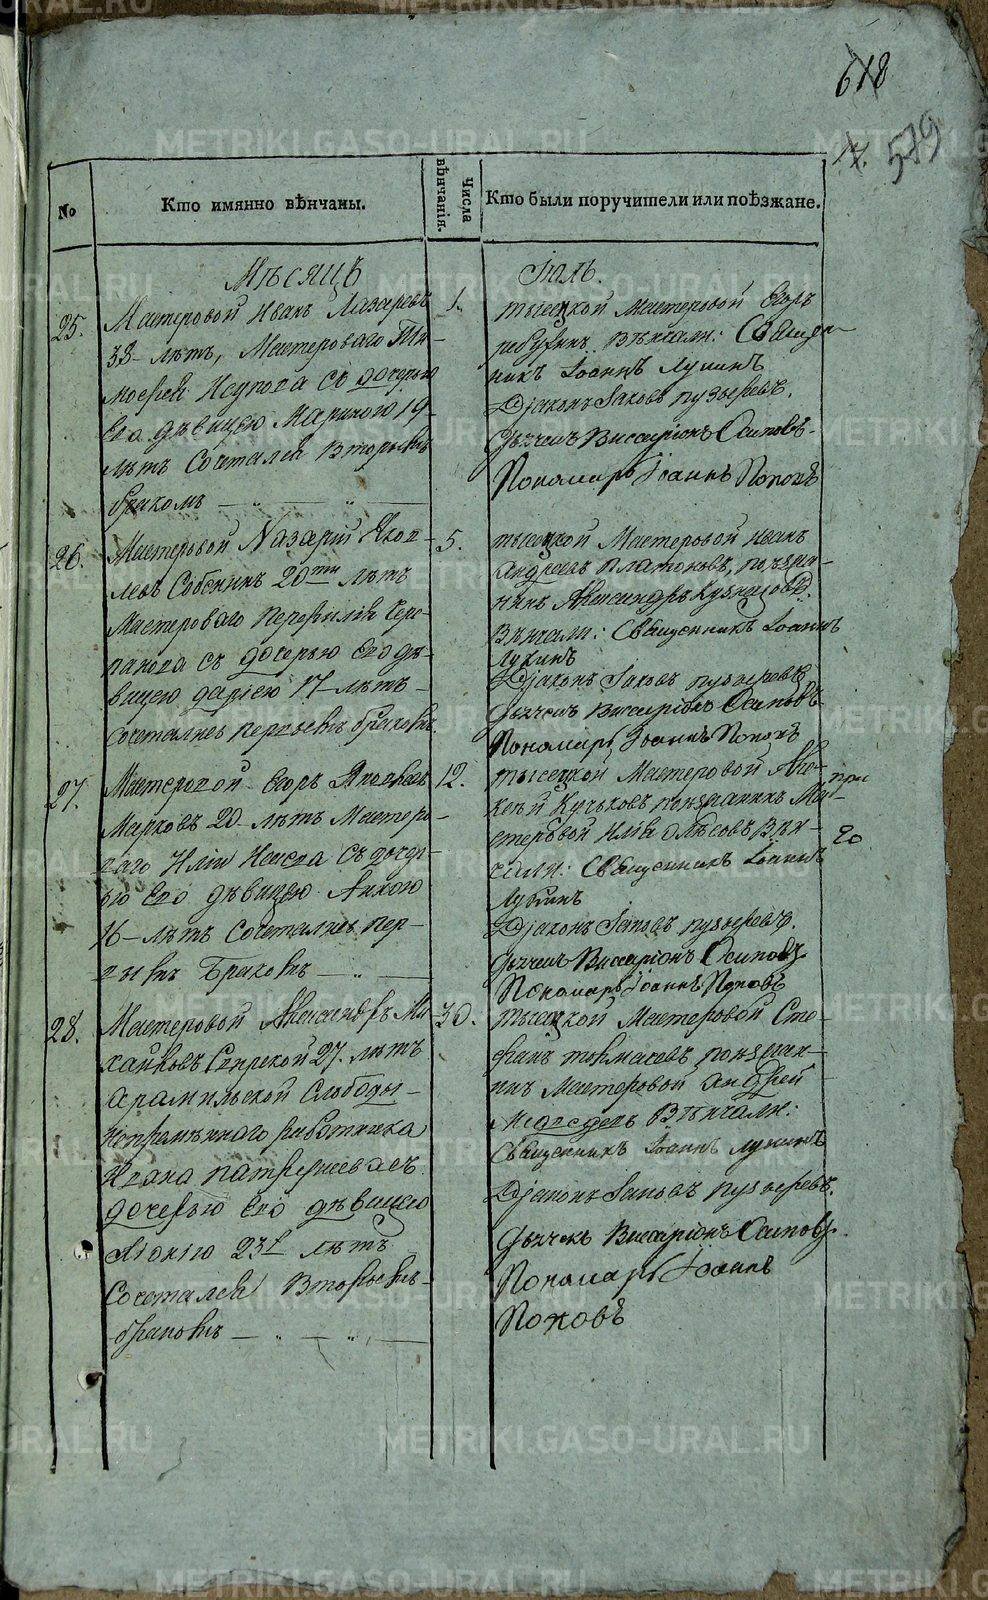 618
579
№
Кто имянно вѣнчаны.
Числа вѣнчанія.
Кто были поручители или поѣзжане.
Мѣсяцъ
Іюль.
25.
Мастеровой Иванъ Лазаревъ
38 лѣтъ, Мастероваго Ти-
мофея съ дочерью
его дѣвицею Мариною 19
лѣтъ Сочетался Вторымъ
бракомъ
1.
тысецкой мастеровой Егоръ
Вѣнчали: Свяще-
никъ Іоаннъ Лукинъ
Діаконъ Іаковъ Пузыревъ.
Дьячекъ Висаріонъ Осиповъ
Пономарь Іоаннъ Поповъ
26.
Мастеровой Назарій Яков-
левъ Собенинъ 20ти лѣтъ
Мастероваго Перфилія
съ дочерью его дѣ-
вицею Даріею 17 лѣтъ
сочетался первымъ бракомъ.
5.
тысецкой Мастеровой Иванъ
Андреевъ Платоновъ, поѣзжа-
нинъ Александръ Кузнецовъ.
Вѣнчали: Священникъ Іоаннъ
Лукинъ
Діаконъ Іаковъ Пузыревъ
Дьячекъ Висаріонъ Осиповъ
Пономарь Іоаннъ Поповъ
27.
Мастеровой Егоръ Яковлевъ
Марковъ 20 лѣтъ Мастеро-
ваго Иліи съ дочер-
ью его дѣвицею Анною
16 лѣтъ Сочетался пер-
вымъ Бракомъ
12.
тысецкой Мастеровой Але-
ксѣй поѣзжанинъ Ма-
стеровой Илія Вѣн-
чали: Священникъ Іоаннъ
Лукинъ
Діаконъ Іаковъ Пузыревъ.
Дьячекъ Висаріонъ Осиповъ
Пономарь Іоаннъ Поповъ
28.
Мастеровой Александръ Ми-
хайловъ 27. лѣтъ
Арамильской Слободы
работника
Ивана съ
дочерью его дѣвицею
23 лѣтъ
Сочетался Вторымъ
бракомъ
30.
тысецкой Мастеровой Сте-
фанъ поѣзжан-
инъ Мастеровой Андрей
Медведевъ Вѣнчали:
Священникъ Іоаннъ Лукинъ
Діаконъ Іаковъ Пузыревъ.
Дьячекъ Висаріонъ Осиповъ.
Пономарь Іоаннъ
Поповъ
METRIKI.GASO-URAL.RU